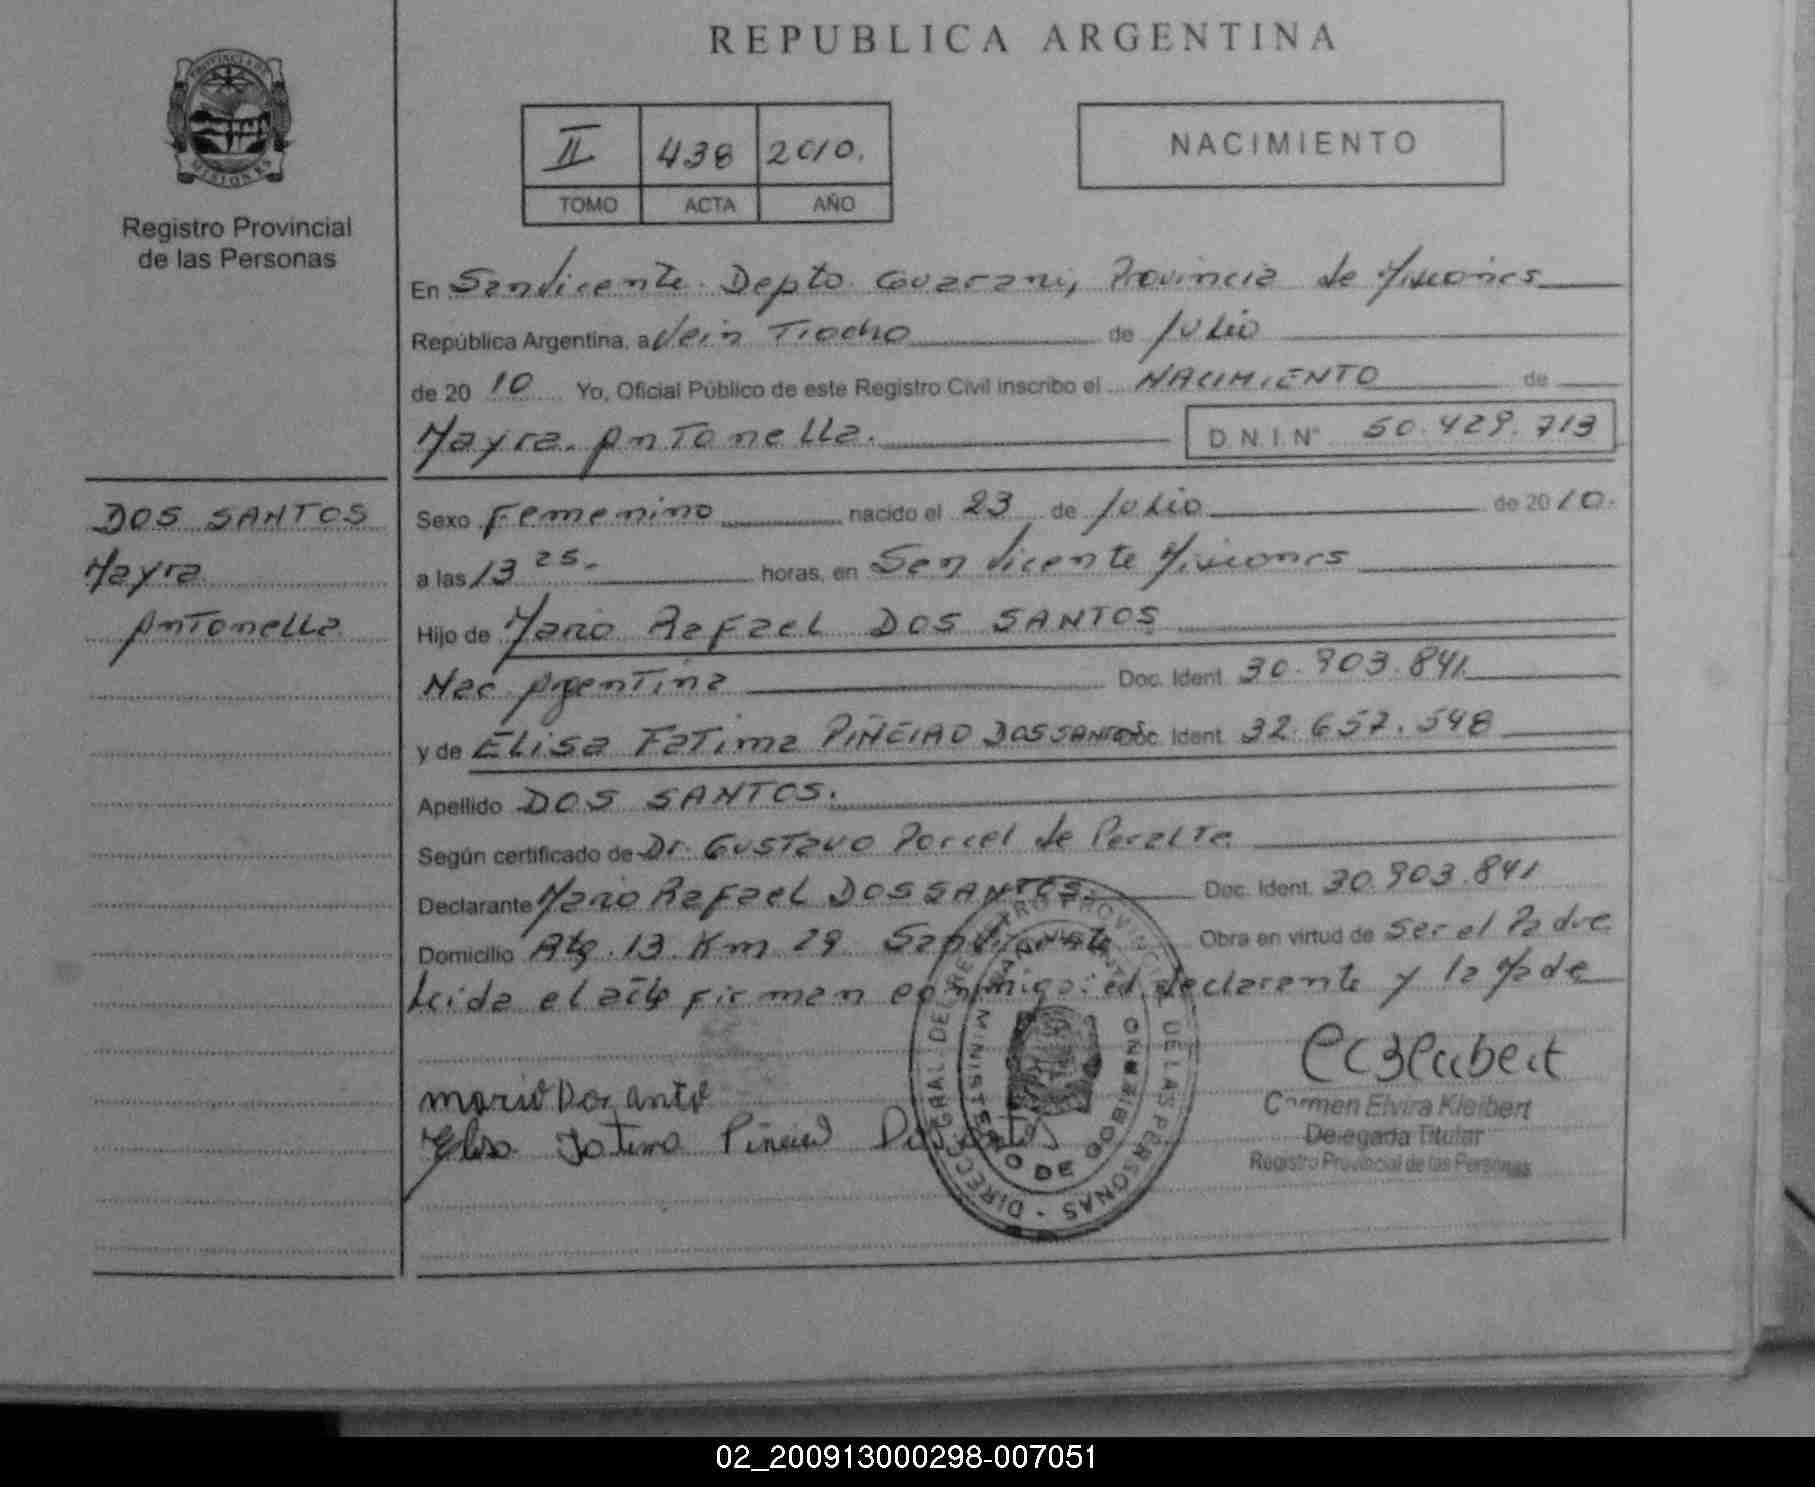 REPUBLICA ARGENTINA
PROVINCIA DE MISIONES
Registro Provincial
de las Personas
II 438 2010.
TOMO ACTA AÑO
NACIMIENTO
En San Vicente Depto Guarani, Provincia de Misiones
República Argentina, a Vein Tiocho de Julio
de 20 10 Yo, Oficial Público de este Registro Civil inscribo el NACIMIENTO de
Mayra Antonella.
D.N.I.Nº 50.429.713
DOS SANTOS
Mayra
Antonella
Sexo Femenino nacido el 23 de Julio de 20 10.
a las 13 25 horas, en San Vicente Misiones
Hijo de Mario Rafael DOS SANTOS
Nac Argentina Doc. Ident. 30.903.841
y de Elisa Fatima PIÑEIRO DOS SANTOS Doc. Ident. 32.657.548
Apellido DOS SANTOS.
Según certificado de Dr. Gustavo Porcel de Peralta
Declarante Mario Rafael DOS SANTOS. Doc. Ident. 30.903.841
Domicilio 13 Km 29 San Vicente Obra en virtud de Ser el Padre
Leida el acta firman conmigo: el declarante y la Made
Elisa Fatima Piñeiro Dos Santos
DIRECC. GRAL. DE REGISTRO PROVINCIAL DE LAS PERSONAS -
MINISTERIO DE GOBIERNO
SAN VICENTE
Carmen Elvira Kleibert
Delegada Titular
Registro Provincial de las Personas
02_200913000298-007051